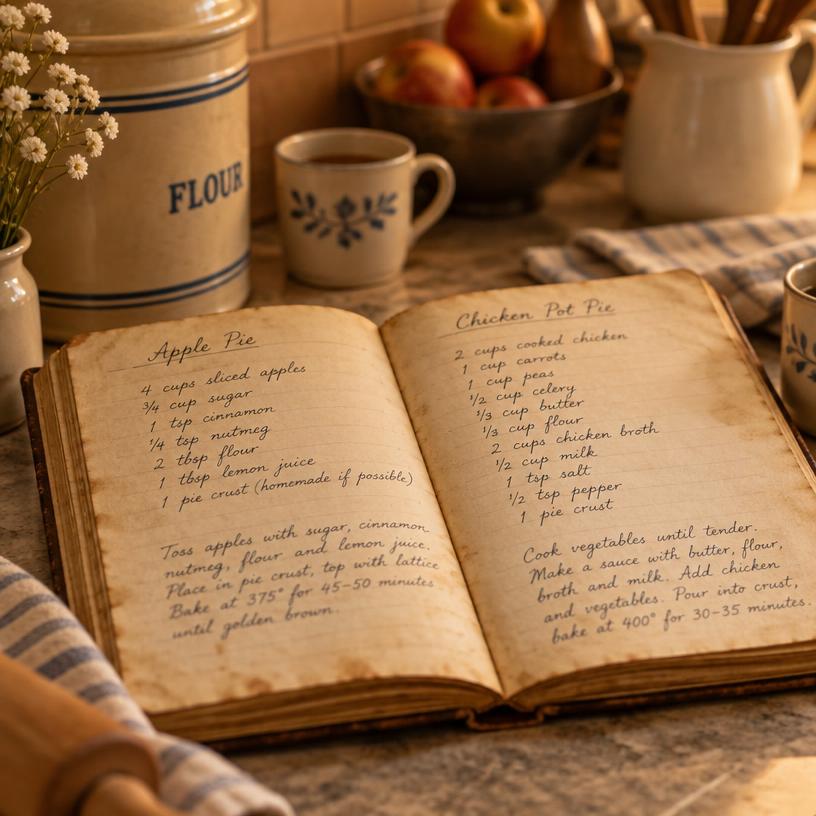 FLOUR
Apple Pie
4 cups sliced apples
3/4 cup sugar
1 tsp cinnamon
1/4 tsp nutmeg
2 tbsp flour
1 tbsp lemon juice
1 pie crust (homemade if possible)
Toss apples with sugar, cinnamon
nutmeg, flour and lemon juice.
Place in pie crust, top with lattice
Bake at 375° for 45-50 minutes
until golden brown.
Chicken Pot Pie
2 cups cooked chicken
1 cup carrots
1 cup peas
1/2 cup celery
1/3 cup butter
1/3 cup flour
2 cups chicken broth
1/2 cup milk
1 tsp salt
1/2 tsp pepper
1 pie crust
Cook vegetables until tender.
Make a sauce with butter, flour,
broth and milk. Add chicken
and vegetables. Pour into crust,
bake at 400° for 30-35 minutes.